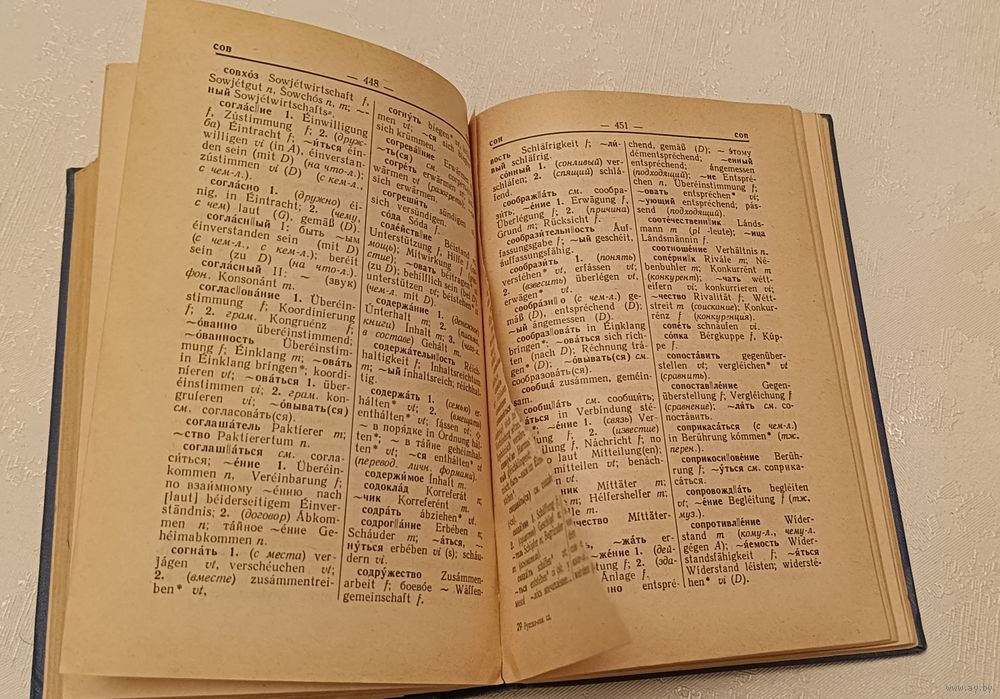 сов
— 448 —
совхо́з Sowjétwirtschaft f,
Sowjétgut n, Sowchós n, m; ~-
ный Sowjétwirtschafts=
согла́с||ие 1. Éinwilligung
f, Zústimmung f; 2. (друж-
ба) Éintracht f; ~и́ться ein-
willigen vi (in A), éinverstan-
den sein (mit D) (на что-л.);
zústimmen vi (D) (с кем-л.,
с чем-л.).
согла́сно 1. (дружно) éi-
nig, in Éintracht; 2. чему,
с чем) laut (G), gemäß (D).
согла́с||ный I: быть ~ым
einverstanden sein (mit D)
(с чем-л., с кем-л.); beréit
sein (zu D) (на что-л.).
согла́сный II: ~ (звук)
фон. Konsonánt m.
соглас||ова́ние 1. Überéin-
stimmung f, Koordinierung
f; 2. грам. Kongruénz f;
~о́ванно überéinstimmend;
~о́ванность Überéinstim-
mung f, Éinklang m; ~ова́ть
in Éinklang bringen*; koordi-
níeren vt; ~ова́ться 1. über-
éinstimmen vi; 2. грам. kon-
gruíeren vi; ~о́вывать(ся)
см. согласова́ть(ся).
соглаша́тель Paktíerer m;
~ство Paktíerertum n.
соглаш||а́ться см. согла-
си́ться; ~е́ние 1. Überéin-
kommen n, Veréinbarung f;
по взаи́мному ~е́нию nach
[laut] béiderseitigem Éinver-
ständnis; 2. (договор) Ábkom-
men n; та́йное ~е́ние Ge-
héimabkommen n.
согна́ть 1. (с места) ver-
jágen vt, verschéuchen vt;
2. (вместе) zusámmentrei-
ben* vt,
согну́ть bíegen* vt,
men vt; ~ся sich
sich krümmen.
согрева́ние Erwärmung
~ть(ся) см
согре́ть
erwärmen vt (разогреть);
sich erwärmen.
согреши́ть sündigen
sich versündigen.
со́да Sóda f.
соде́йств||ие Béistand m,
Unterstützung f, Hilfe f (по-
мощь); Mítwirkung f
стие); ~овать béitragen*
(zu D); behílflich sein (bei D),
unterstützen vt; béistehen* vi
(чем-л. mit D).
содержа́ние 1. (денежное)
Únterhalt m; 2. (письма,
книги) Ínhalt m; 3. (чего-л.
в составе) Gehált m.
содержа́тельн||ость Réich-
haltigkeit f; Ínhaltsreichtum
m; ~ый ínhaltsreich; réichhal-
tig.
содержа́ть 1. (семью) er-
hálten* vt; 2. (вмещать)
enthálten* vt; fássen vt; ◇
~ в поря́дке in Órdnung hál-
ten*; ~ в та́йне gehéimhal-
ten* vt; ~ся enthálten* vt
(перевод. личн. формами).
содержи́мое Ínhalt m.
содокла́д Korreferát n;
~чик Korreferént m.
содра́ть ábziehen* vt.
содрог||а́ние Erbében n,
Scháuder m; ~а́ться, ~-
ну́ться erbében vi (s); scháu-
dern vi.
содру́жество Zusámmen-
arbeit f; боево́е ~ Wáffen-
gemeinschaft f.
сон
— 451 —
соп
вость Schläfrigkeit f; ~ли́-
вый schläfrig.
со́нный 1. (сонливый) ver-
schláfen; 2. (спящий) schlá-
fend.
сообража́||ть см. сообра-
зи́ть; ~е́ние 1. Erwägung f,
Überlégung f; 2. (причина)
Grund m; Rücksicht f.
сообрази́тельн||ость Áuf-
fassungsgabe f; ~ый geschéit,
áuffassungsfähig.
сообрази́ть 1. (понять)
verstéhen* vt, erfássen vt;
2. (взвесить) überlégen vt,
erwägen* vt.
сообра́зн||о (с чем-л.) ge-
mäß (D), entspréchend (D);
~ый ángemessen (D).
сообраз||ова́ть in Éinklang
bringen*; ~ова́ться sich rich-
ten (nach D); Réchnung trá-
gen* (D); ~о́вывать(ся) см.
сообразова́ть(ся).
сообща́ zusámmen, geméin-
sam.
сообщ||а́ть см. сообщи́ть;
~а́ться in Verbíndung sté-
~е́ние 1. (связь) Ver-
f; 2. (известие)
f, Náchricht f; по
laut Mítteilung(en);
mítteilen vt; benách-
ник Míttäter m;
m; Hélfershelfer m;
m.
чество Míttäter-
~жа́ть er-
~же́ние 1. (дей-
f; 2. (зда-
Ánlage f.
entspré-
29 Русско-нем. сл.
chend, gemäß (D); ~ э́тому
démentspréchend; ~енный
entspréchend; ángemessen
(подходящий); ~ие Entspré-
chen n, Überéinstimmung f;
~овать entspréchen* vi;
~ующий entspréchend; pás-
send (подходящий).
сооте́чественн||ик Lánds-
mann m (pl -leute); ~ица
Lándsmännin f.
соотноше́ние Verhältnis n.
сопе́рн||ик Rivále m; Né-
benbuhler m; Konkurrént m
(конкурент); ~чать wétt-
eifern vi; konkurríeren vi;
~чество Rivalität f; Wétt-
streit m (соискание); Konkur-
rénz f (конкуренция).
сопе́ть schnáufen vi.
со́пка Bérgkuppe f, Kúp-
pe f.
сопоста́вить gegenüber-
stellen vt; vergléichen* vt
(сравнить).
сопоставл||е́ние Gegen-
überstellung f; Vergléichung f
(сравнение); ~я́ть см. со-
поста́вить.
соприкаса́ться (с чем-л.)
in Berührung kómmen* (тж.
перен.).
соприкоснов||е́ние Berüh-
rung f; ~у́ться см. соприка-
са́ться.
сопровожд||а́ть begléiten
vt; ~е́ние Begléitung f (тж.
муз.).
сопротивл||е́ние Wíder-
stand m (кому-л., чему-л.
gégen A); ~я́емость Wíder-
standsfähigkeit f; ~я́ться
Wíderstand léisten; widersté-
hen* vi (D).
www.ay.by